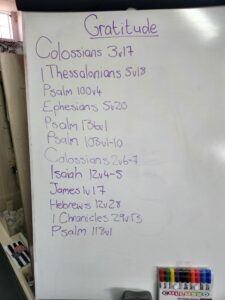 Gratitude
Colossians 3v17
1 Thessalonians 5v18
Psalm 100v4
Ephesians 5v20
Psalm 136v1
Psalm 103v1-10
Colossians 2v6-7
Isaiah 12v4-5
James 1v17
Hebrews 12v28
1 Chronicles 29v13
Psalm 118v1